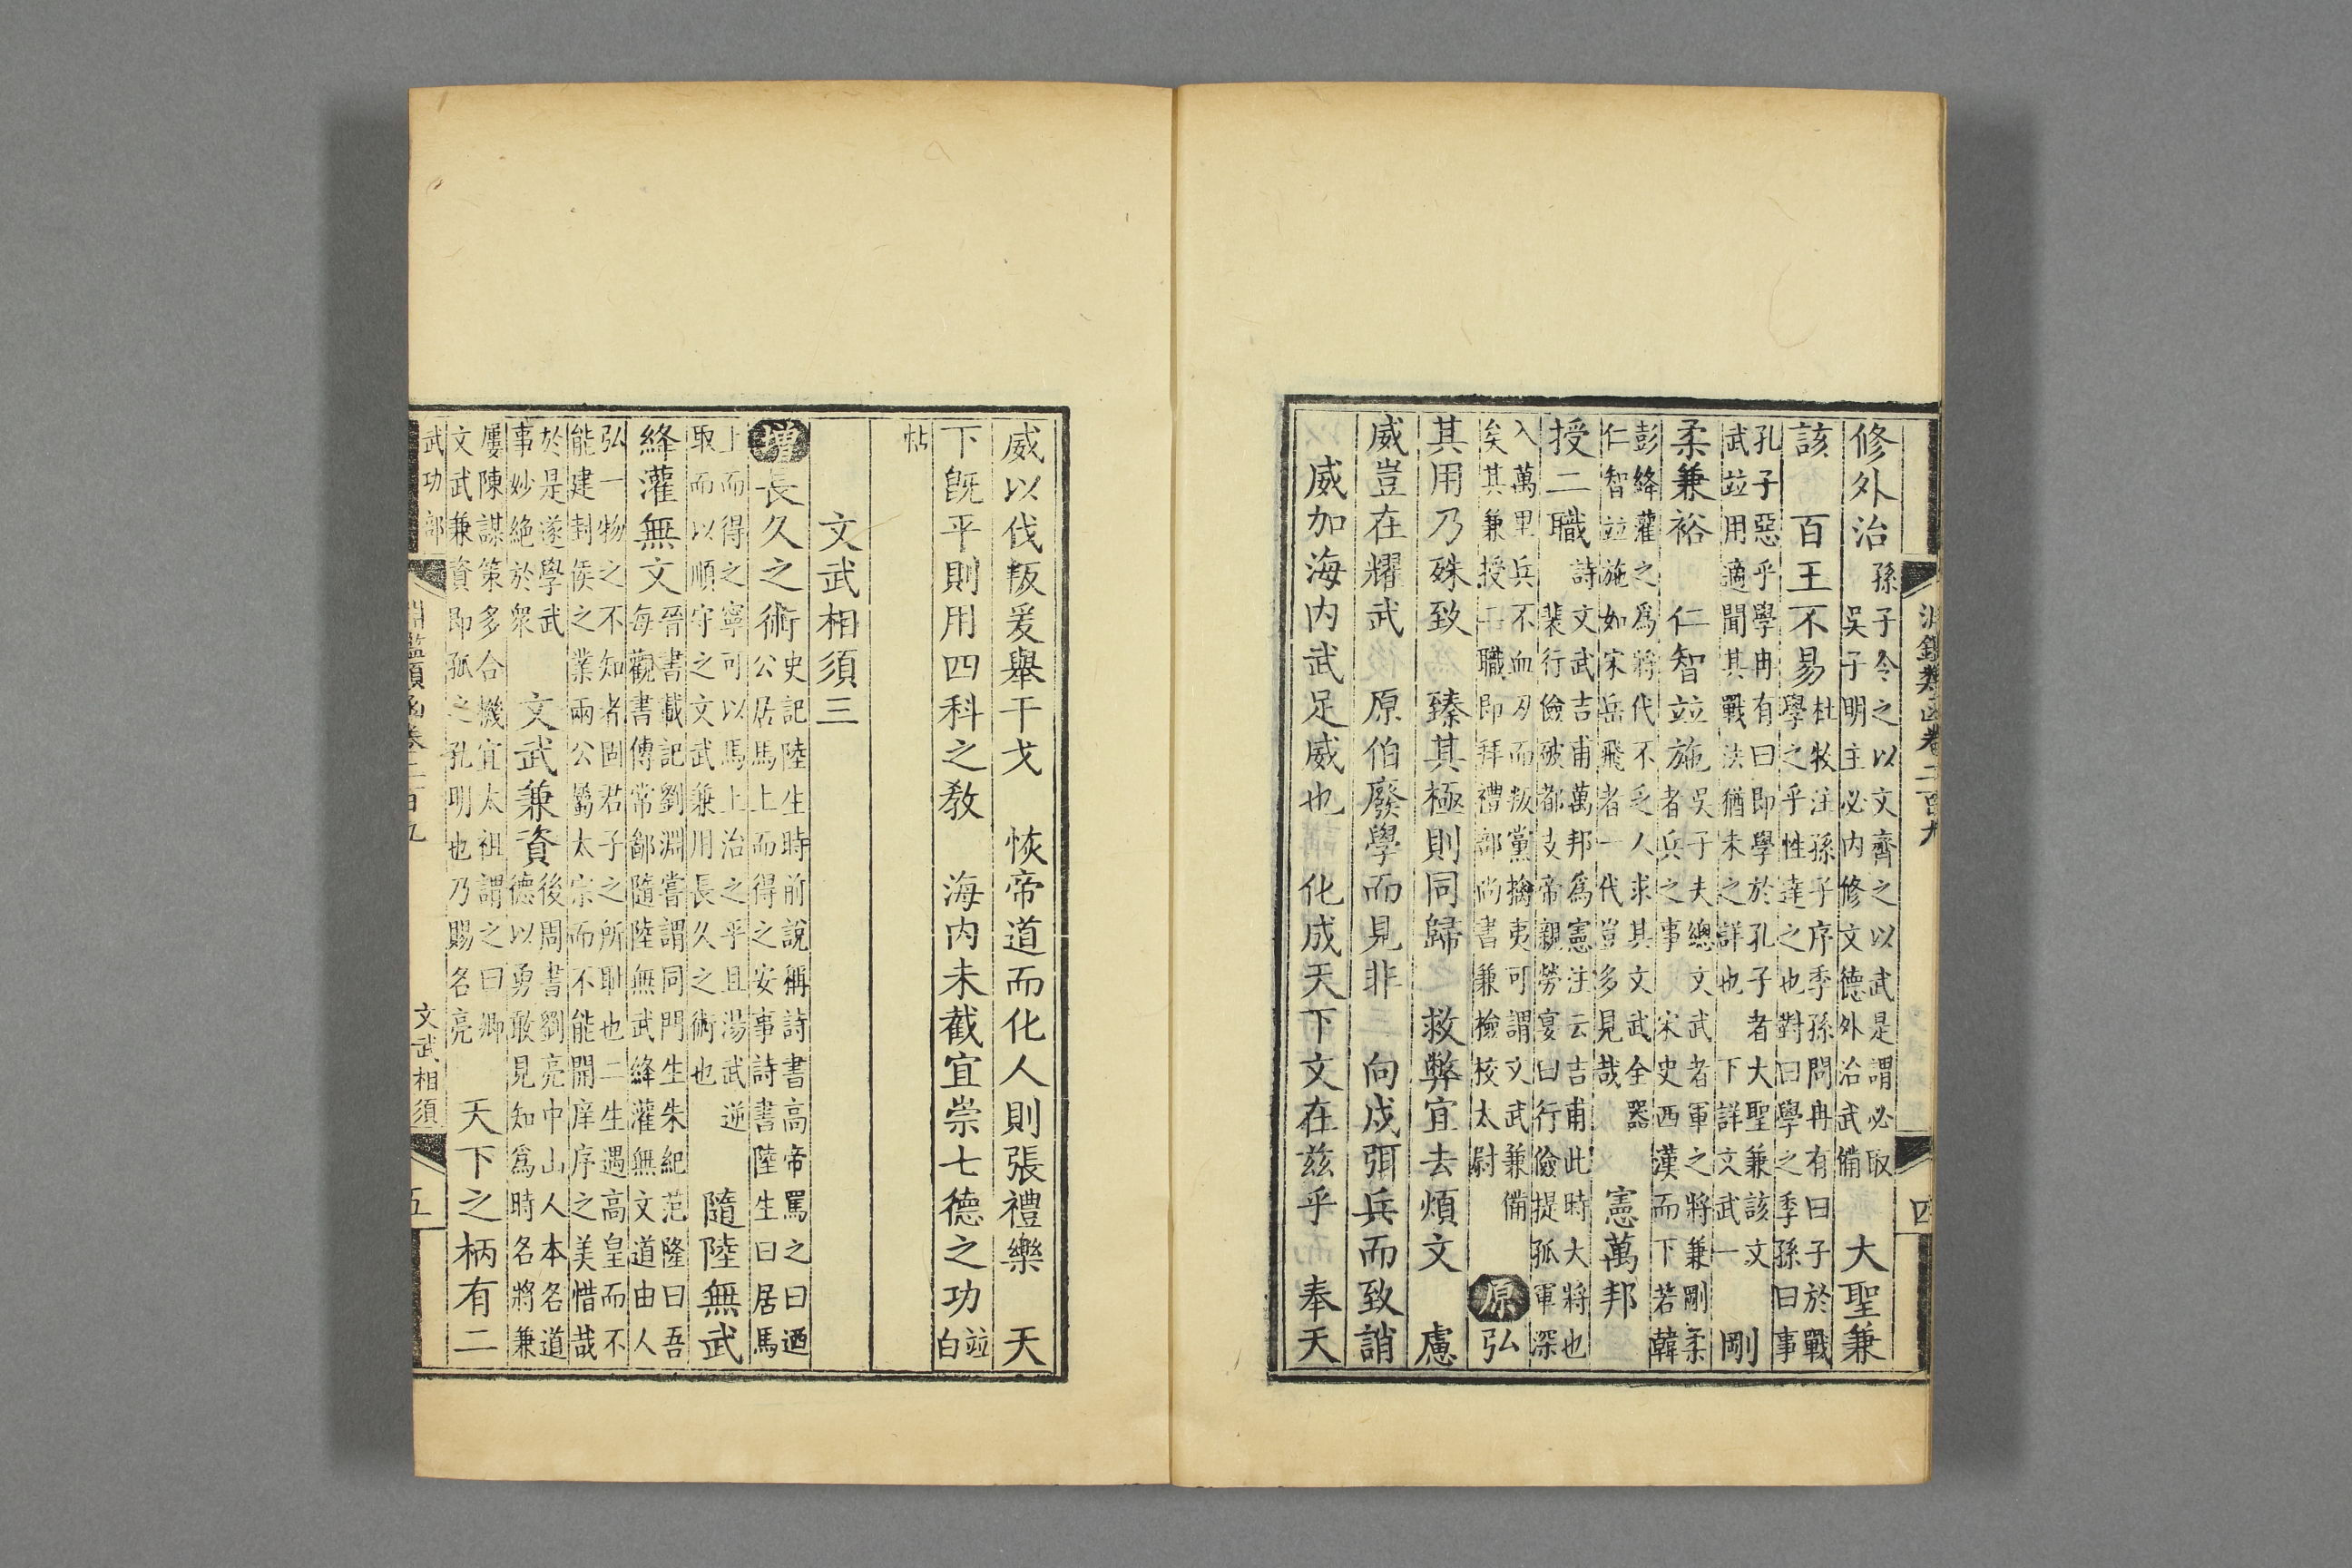 淵鑑類函卷二百九 四
修外治 孫子令之以文齊之以武是謂必取
吳子明主必內修文德外治武備 大聖兼
該 百王不易 杜牧注孫子序季孫問冉有曰子於戰
學之乎性達之也對曰學之季孫曰事
孔子惡乎學冉有曰即學於孔子者大聖兼該文
武竝用適聞其戰法猶未之詳也 下詳文武一 剛
柔兼裕 仁智竝施 吳子夫總文武者軍之將兼剛柔
者兵之事 宋史西漢而下若韓
彭絳灌之爲將代不乏人求其文武全器
仁智竝施如宋岳飛者一代豈多見哉 憲萬邦
授二職 詩文武吉甫萬邦爲憲注云吉甫此時大將也
裴行儉破都支帝親勞宴曰行儉提孤軍深
入萬里兵不血刃而叛黨擒夷可謂文武兼備
矣其兼授二職即拜禮部尚書兼檢校太尉 原 弘
其用乃殊致 臻其極則同歸 救弊宜去煩文 慮
威豈在耀武 原伯廢學而見非 向戌弭兵而致誚
威加海內武足威也 化成天下文在茲乎 奉天
威以伐叛爰舉干戈 恢帝道而化人則張禮樂 天
下旣平則用四科之教 海內未截宜崇七德之功 竝白
帖
文武相須三
增 長久之術 史記陸生時前說稱詩書高帝罵之曰迺
公居馬上而得之安事詩書陸生曰居馬
上而得之寧可以馬上治之乎且湯武逆
取而以順守之文武兼用長久之術也 隨陸無武
絳灌無文 晉書載記劉淵嘗謂同門生朱紀范隆曰吾
每觀書傳常鄙隨陸無武絳灌無文道由人
弘一物之不知者固君子之所恥也二生遇高皇而不
能建封侯之業兩公屬太宗而不能開庠序之美惜哉
於是遂學武
事妙絕於衆 文武兼資 後周書劉亮中山人本名道
德以勇敢見知爲時名將兼
屢陳謀策多合機宜太祖謂之曰卿
文武兼資即孤之孔明也乃賜名亮 天下之柄有二
武功部 淵鑑類函卷二百九 文武相須 五